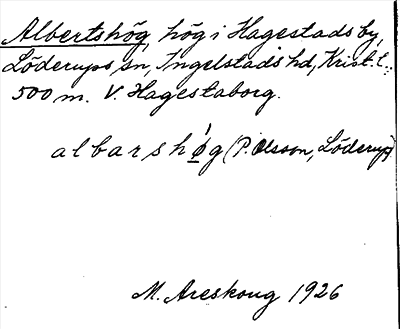 Albertshög, hög i Hagestads by,
Löderups sn, Ingelstads hd, Krist. l.:
500 m. V. Hagestaborg.
albarshǿg (P. Olsson, Löderup)
M. Areskoug 1926